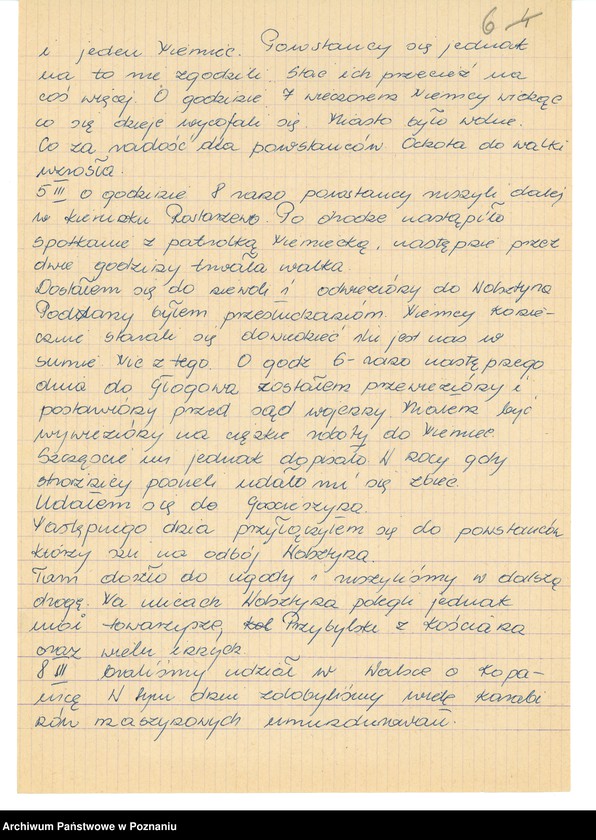 6 4
i jeden Niemiec. Powstańcy się jednak
na to nie zgodzili. Stać ich przecież na
coś więcej. O godzinie 7 wieczorem Niemcy widząc
co się dzieje wycofali się. Miasto było wolne.
Co za radość dla powstańców Ochota do walki
wzrosła.
5 III o godzinie 8 rano powstańcy ruszyli dalej
w kierunku Rostarzewo. Po drodze nastąpiło
spotkanie z patrolką Niemiecką, następnie przez
dwie godziny trwała walka.
Dostałem się do niewoli i odwieziony do Wolsztyna
Poddany byłem przesłuchaniom. Niemcy konie-
cznie starali się dowiedzieć ilu jest nas w
sumie Nic z tego. O godz 6- rano następnego
dnia do Głogowa zostałem przewieziony i
postawiony przed sąd wojenny Miałem być
wywieziony na ciężkie roboty do Niemiec.
Szczęście mi jednak dopisało W nocy gdy
strażnicy posneli udało mi się zbiec.
Udałem się do
Następnego dnia przyłączyłem się do powstańców
którzy szli na odbój Wolsztyna.
Tam doszło do ugody i ruszyliśmy w dalszą
drogę. Na ulicach Wolsztyna polegli jednak
moi towarzysze, Przybylski z Kościana
oraz wielu innych.
8 III braliśmy udział w Walce o Kopa-
nicę W tym dniu zdobyliśmy wielę karabi
nów maszynowych umundurowań.
Archiwum Państwowe w Poznaniu